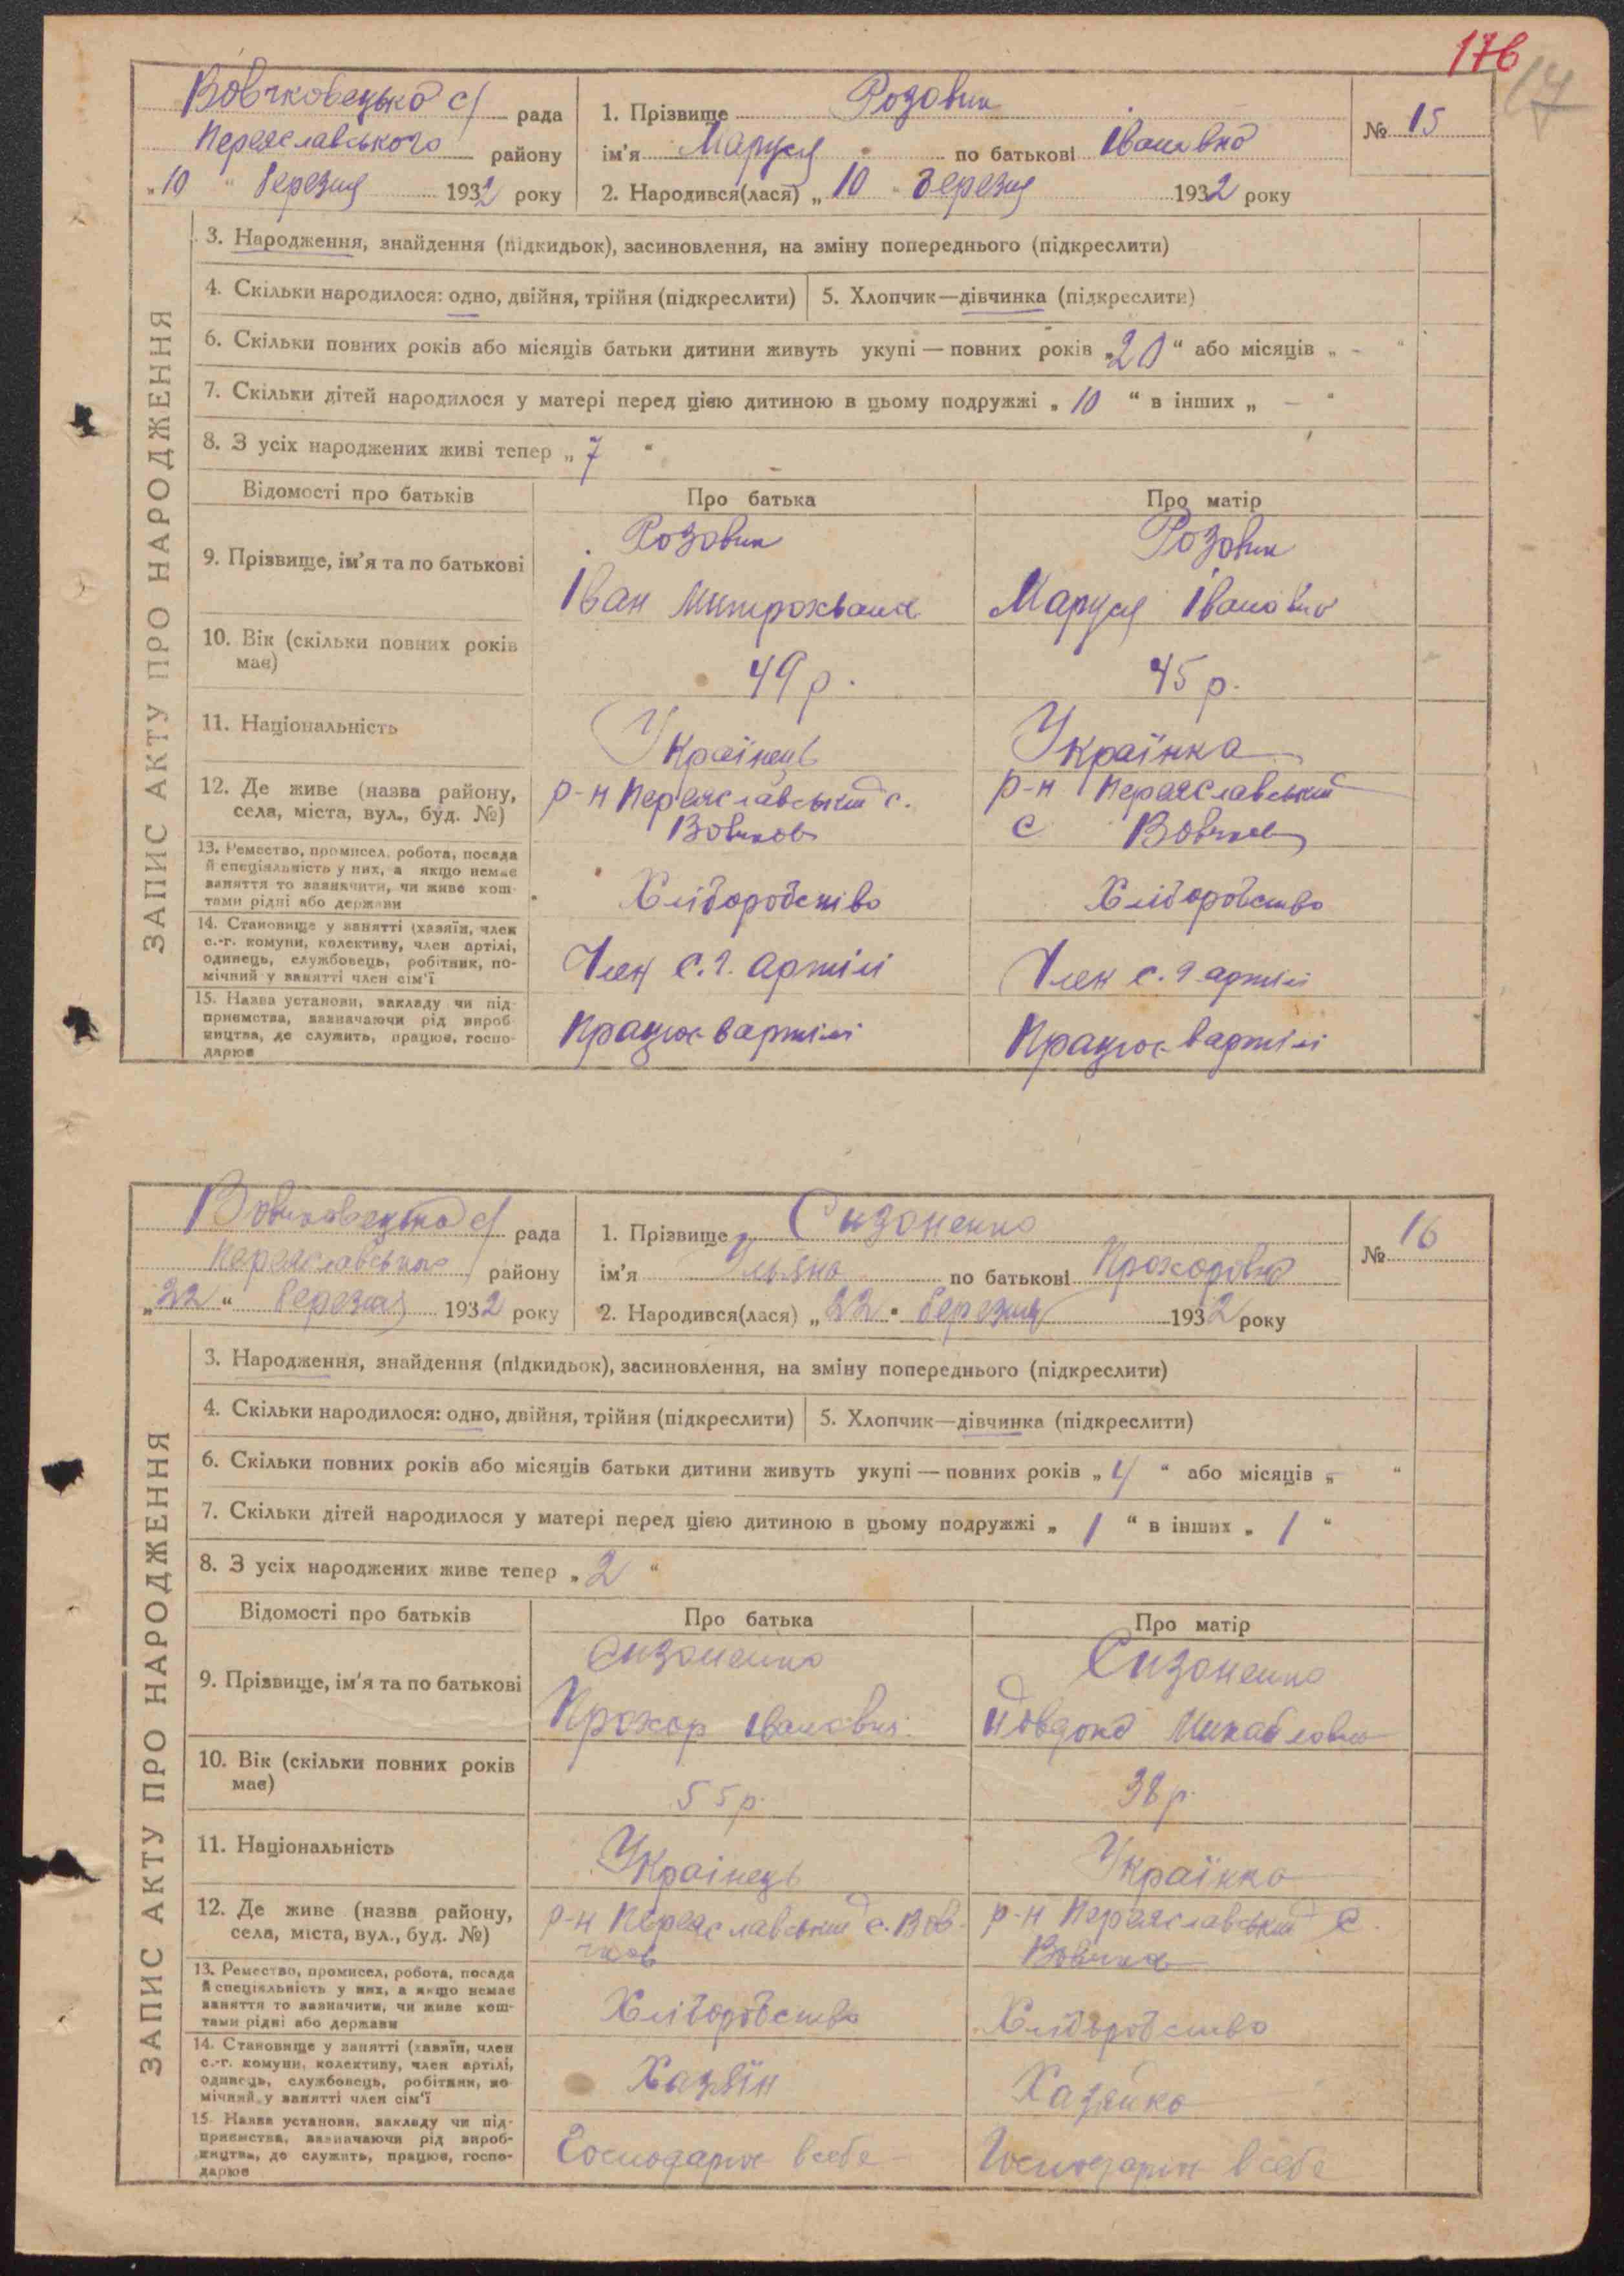 176
17
Вовчковецька с/ рада
Переяславського району
„10" березня 1932 року
1. Прізвище Розовик
ім'я Маруся по батькові Івановна
2. Народився(лася) „10" березня 1932 року
№ 15
ЗАПИС АКТУ ПРО НАРОДЖЕННЯ
3. Народження, знайдення (підкидьок), засиновлення, на зміну попереднього (підкреслити)
4. Скільки народилося: одно, двійня, трійня (підкреслити)
5. Хлопчик—дівчинка (підкреслити)
6. Скільки повних років або місяців батьки дитини живуть укупі — повних років „20" або місяців „ - "
7. Скільки дітей народилося у матері перед цією дитиною в цьому подружжі „ 10 " в інших „ — "
8. З усіх народжених живі тепер „ 7 "
Відомості про батьків
Про батька
Про матір
9. Прізвище, ім'я та по батькові
Розовик
Іван
Розовик
Маруся Івановна
10. Вік (скільки повних років
має)
49 р.
45 р.
11. Національність
Українець
Українка
12. Де живе (назва району,
села, міста, вул., буд. №)
р-н Переяславський с.
Вовчков
р-н Переяславський
с Вовчков
13. Ремество, промисел, робота, посада
й спеціяльність у них, а якщо немає
заняття то зазначити, чи живе кош-
тами рідні або держави
Хліборобство
Хліборобство
14. Становище у занятті (хазяїн, член
с.-г. комуни, колективу, член артілі,
одинець, службовець, робітник, по-
мічний у занятті член сім'ї
Член с.г. артілі
Член с.г. артілі
15. Назва установи, закладу чи під-
приємства, зазначаючи рід вироб-
ництва, де служить, працює, госпо-
дарює
Працює в артілі
Працює в артілі
Вовчковецька с/ рада
Переяславського району
„22" березня 1932 року
1. Прізвище Сизоненко
ім'я Ульяна по батькові Прохоровна
2. Народився(лася) „22" березня 1932 року
№ 16
ЗАПИС АКТУ ПРО НАРОДЖЕННЯ
3. Народження, знайдення (підкидьок), засиновлення, на зміну попереднього (підкреслити)
4. Скільки народилося: одно, двійня, трійня (підкреслити)
5. Хлопчик—дівчинка (підкреслити)
6. Скільки повних років або місяців батьки дитини живуть укупі — повних років „ 4 " або місяців „ - "
7. Скільки дітей народилося у матері перед цією дитиною в цьому подружжі „ 1 " в інших „ 1 "
8. З усіх народжених живе тепер „ 2 "
Відомості про батьків
Про батька
Про матір
9. Прізвище, ім'я та по батькові
Сизоненко
Прохор Іванович
Сизоненко
10. Вік (скільки повних років
має)
55 р.
38 р.
11. Національність
Українець
Українка
12. Де живе (назва району,
села, міста, вул., буд. №)
р-н Переяславський с. Вов-
чков
р-н Переяславський с.
Вовчков
13. Ремество, промисел, робота, посада
й спеціяльність у них, а якщо немає
заняття то зазначити, чи живе кош-
тами рідні або держави
Хліборобство
Хліборобство
14. Становище у занятті (хазяїн, член
с.-г. комуни, колективу, член артілі,
одинець, службовець, робітник, по-
мічний у занятті член сім'ї
Хазяїн
Хазяйка
15. Назва установи, закладу чи під-
приємства, зазначаючи рід вироб-
ництва, де служить, працює, госпо-
дарює
Господарює в себе
Господарює в себе